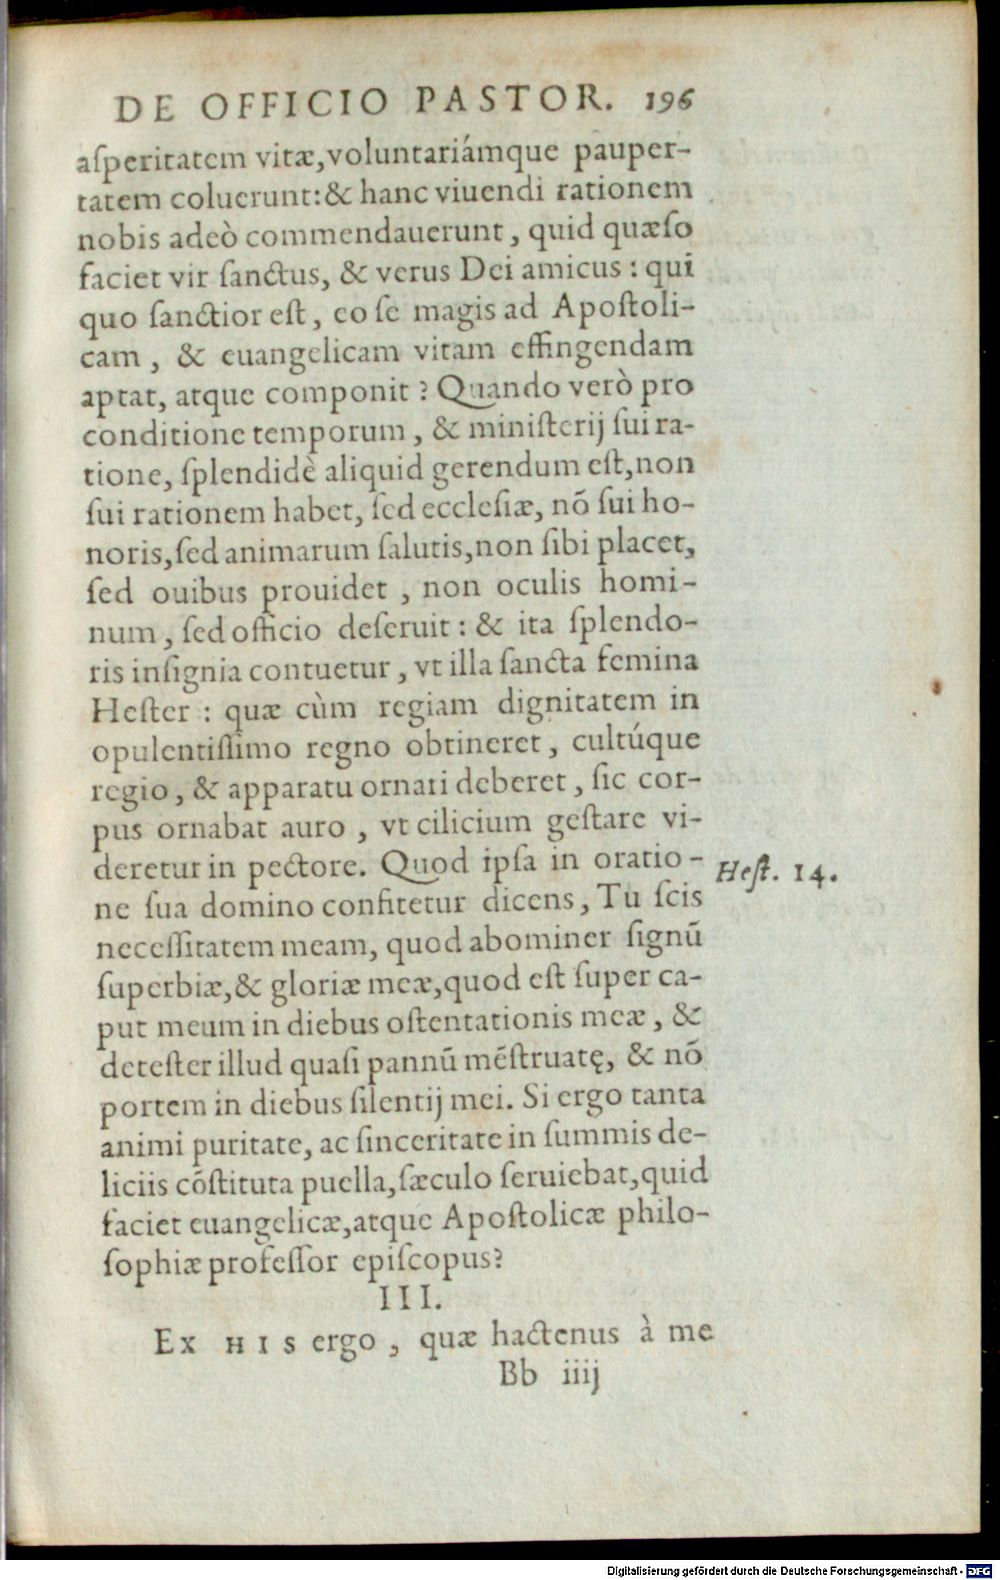 DE OFFICIO PASTOR. 196
asperitatem vitæ, voluntariámque pauper-
tatem coluerunt: & hanc viuendi rationem
nobis adeò commendauerunt, quid quæso
faciet vir sanctus, & verus Dei amicus: qui
quo sanctior est, eo se magis ad Apostoli-
cam, & euangelicam vitam effingendam
aptat, atque componit? Quando verò pro
conditione temporum, & ministerij sui ra-
tione, splendidè aliquid gerendum est, non
sui rationem habet, sed ecclesiæ, nõ sui ho-
noris, sed animarum salutis, non sibi placet,
sed ouibus prouidet, non oculis homi-
num, sed officio deseruit: & ita splendo-
ris insignia contuetur, vt illa sancta femina
Hester: quæ cùm regiam dignitatem in
opulentissimo regno obtineret, cultúque
regio, & apparatu ornari deberet, sic cor-
pus ornabat auro, vt cilicium gestare vi-
deretur in pectore. Quod ipsa in oratio-
Hest. 14.
ne sua domino confitetur dicens, Tu scis
necessitatem meam, quod abominer signũ
superbiæ, & gloriæ meæ, quod est super ca-
put meum in diebus ostentationis meæ, &
detester illud quasi pannũ mẽstruatę, & nõ
portem in diebus silentij mei. Si ergo tanta
animi puritate, ac sinceritate in summis de-
liciis cõstituta puella, sæculo seruiebat, quid
faciet euangelicæ, atque Apostolicæ philo-
sophiæ professor episcopus?
III.
Ex HIS ergo, quæ hactenus à me
Bb iiij
Digitalisierung gefördert durch die Deutsche Forschungsgemeinschaft - DFG